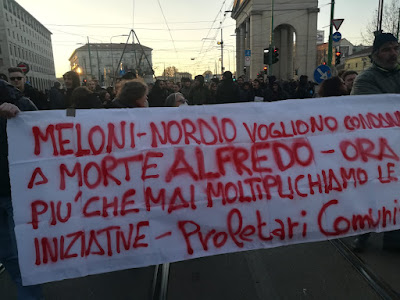 MELONI-NORDIO VOGLIONO CONDAN
A MORTE ALFREDO - ORA
PIU' CHE MAI MOLTIPLICHIAMO LE
INIZIATIVE - Proletari Comuni